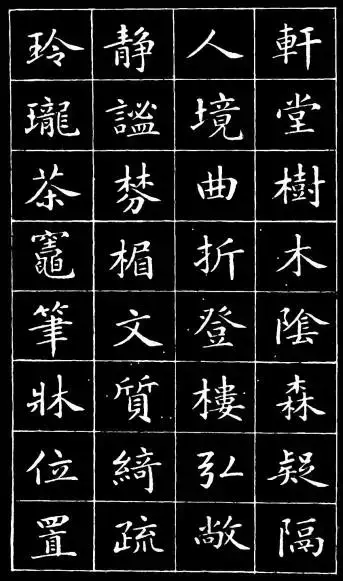 軒堂樹木陰森疑隔
人境曲折登樓弘敞
靜謐棼楣文質綺疏
玲瓏茶竈筆牀位置